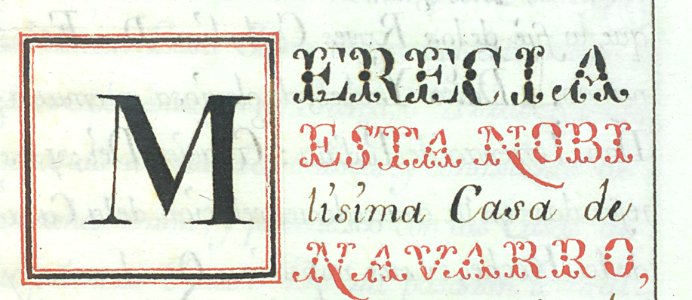 MERECIA
ESTA NOBI
lisima Casa de
NAVARRO,